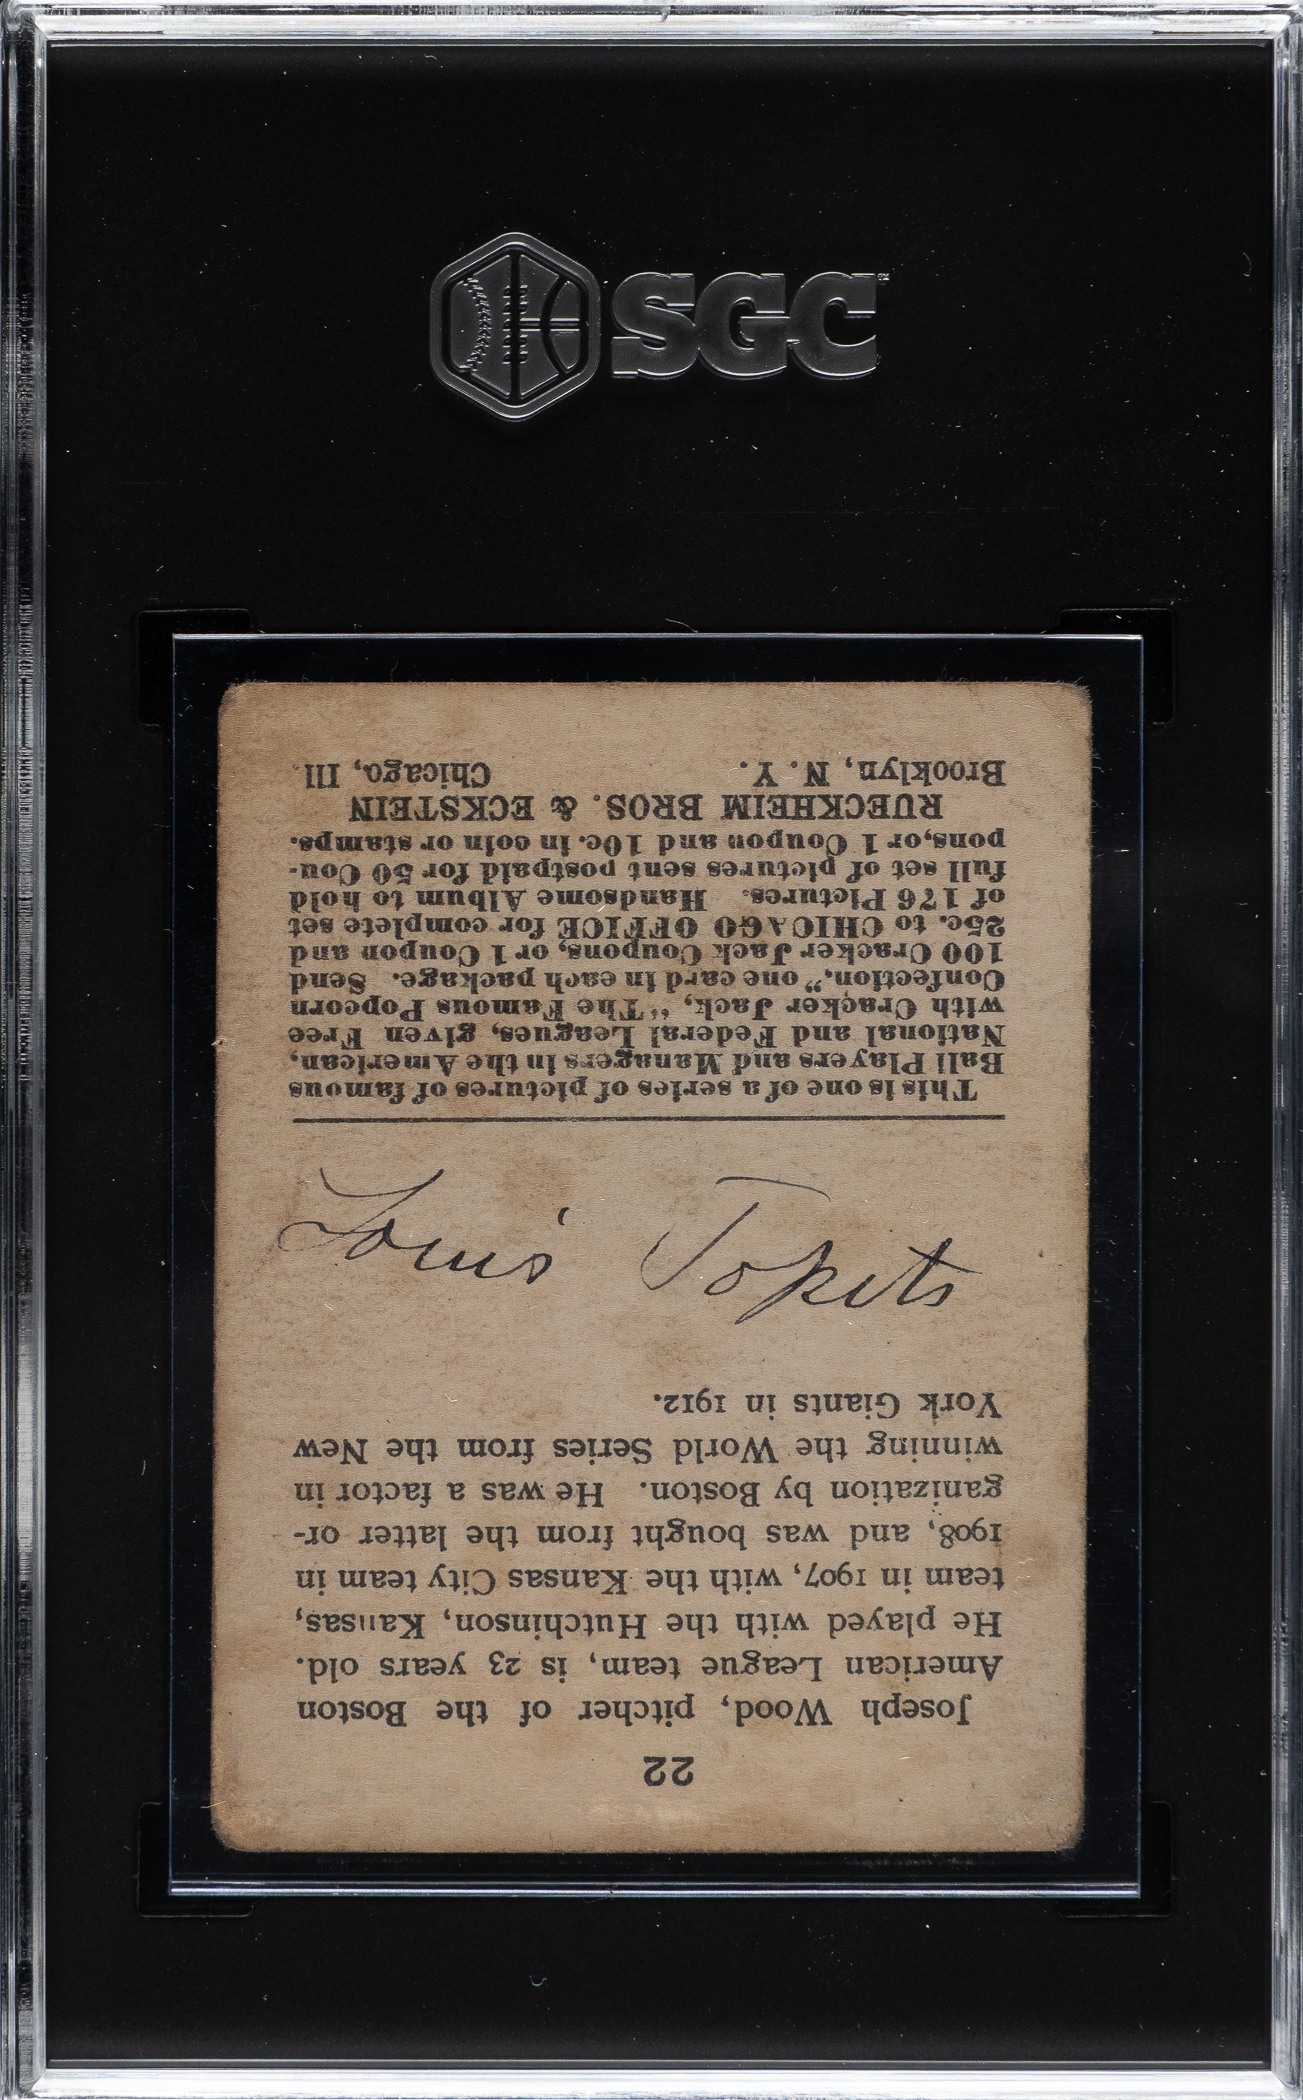 SGC
22
Joseph Wood, pitcher of the Boston
American League team, is 23 years old.
He played with the Hutchinson, Kansas,
team in 1907, with the Kansas City team in
1908, and was bought from the latter or-
ganization by Boston. He was a factor in
winning the World Series from the New
York Giants in 1912.
Louis Topits
This is one of a series of pictures of famous
Ball Players and Managers in the American,
National and Federal Leagues, given Free
with Cracker Jack, "The Famous Popcorn
Confection," one card in each package. Send
100 Cracker Jack Coupons, or 1 Coupon and
25c. to CHICAGO OFFICE for complete set
of 176 Pictures. Handsome Album to hold
full set of pictures sent postpaid for 50 Cou-
pons, or 1 Coupon and 10c. in coin or stamps.
RUECKHEIM BROS. & ECKSTEIN
Brooklyn, N. Y. Chicago, Ill.